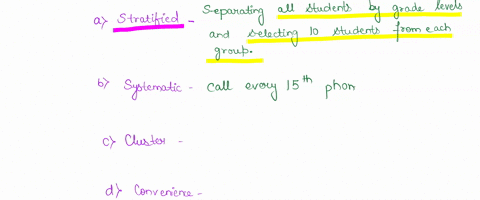 a) Stratified - Separating all students by grade levels
and selecting 10 students from each
group.
b) Systematic - call every 15th phon
c) Cluster -
d) Convenience -